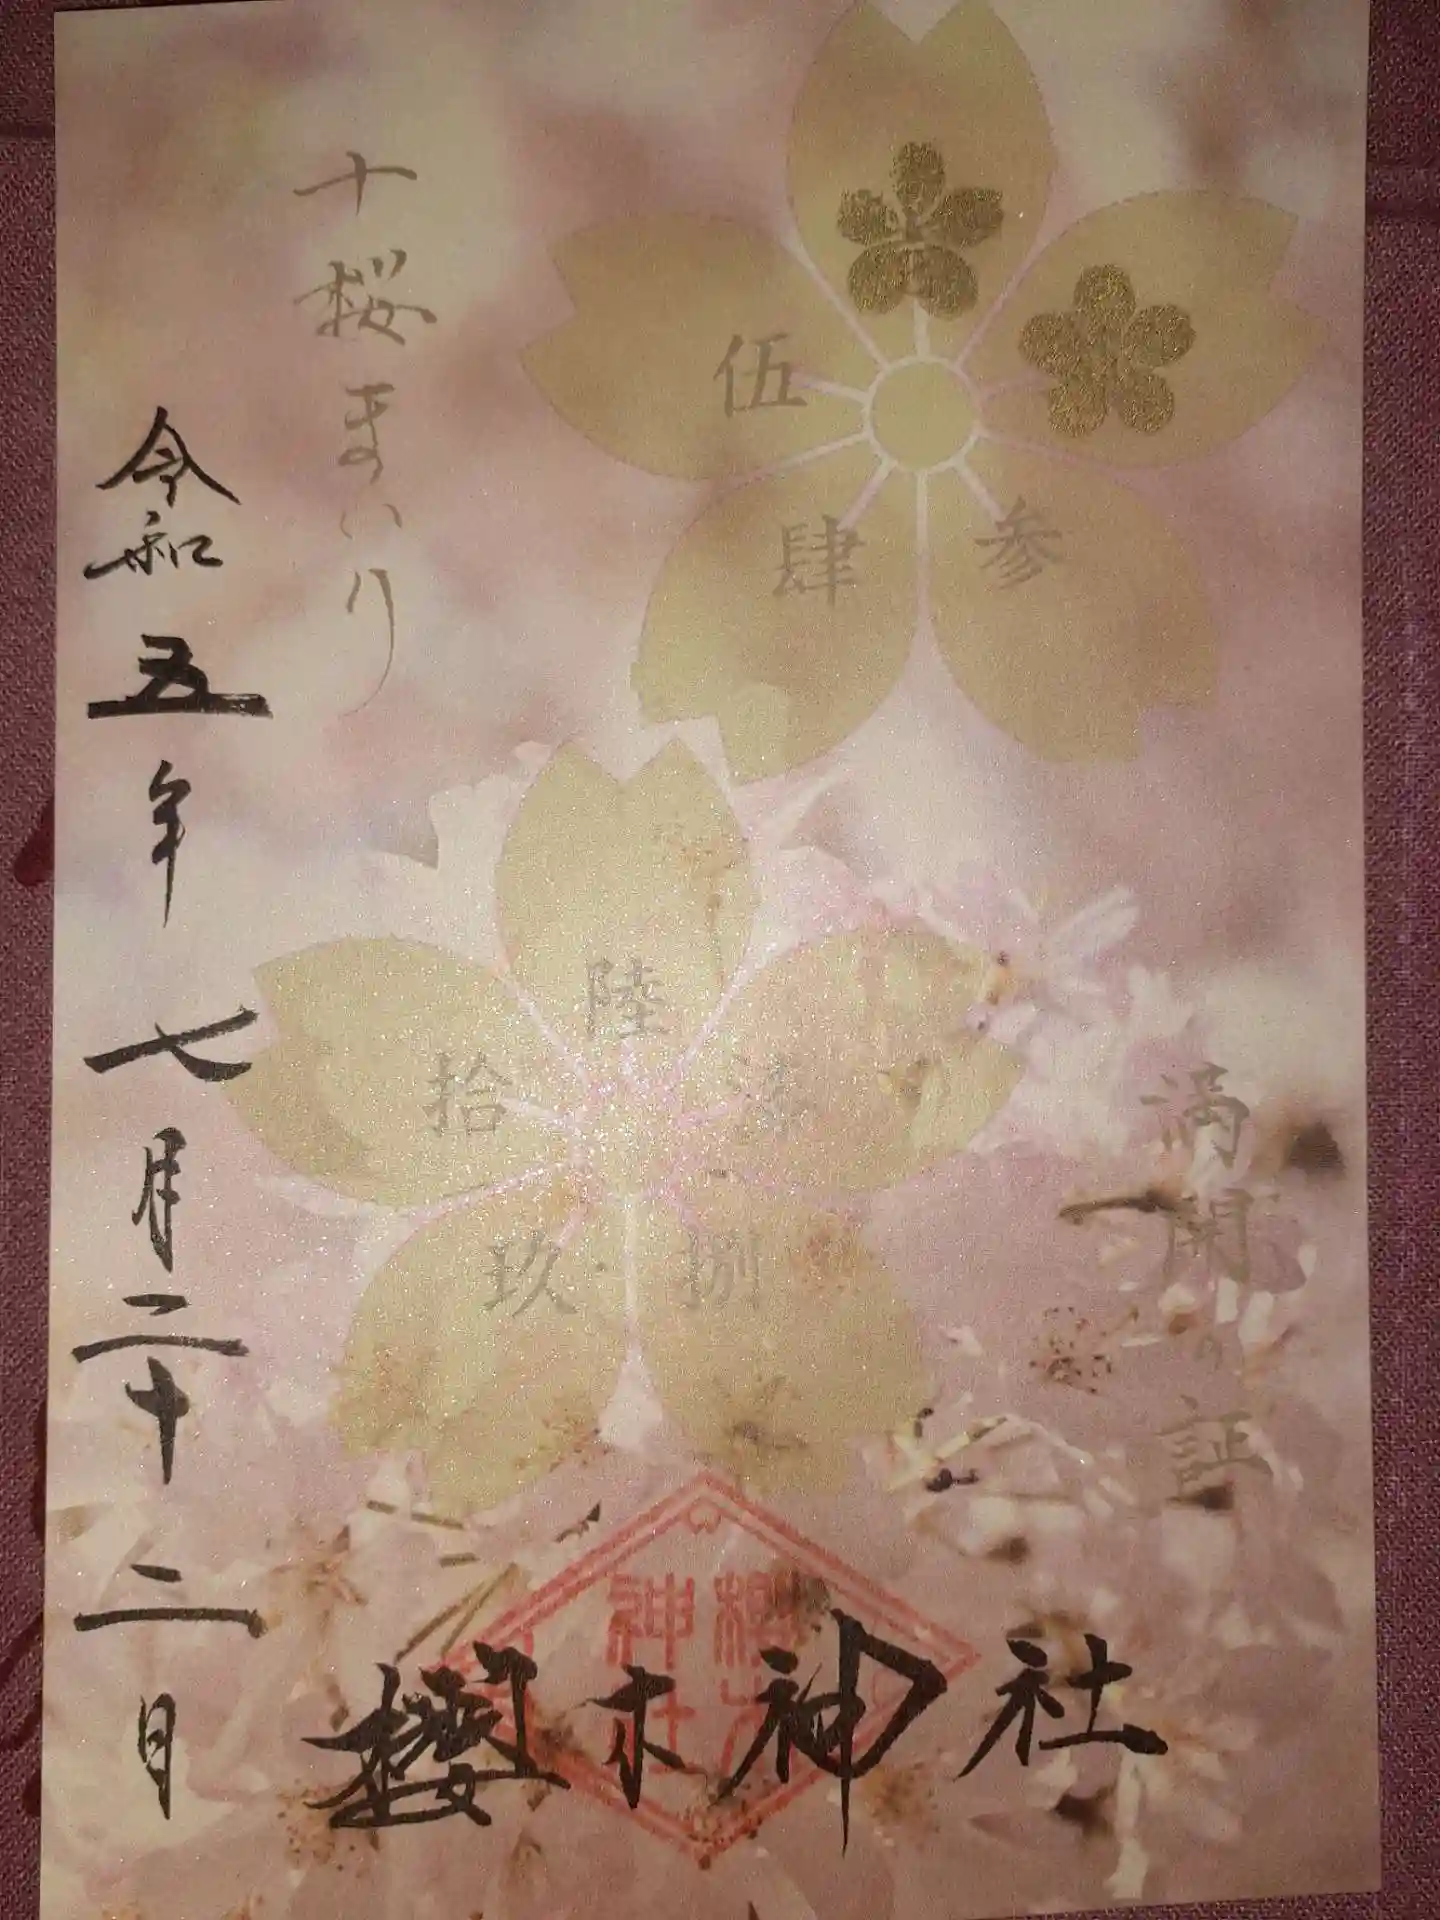 満開の証
参
肆
伍
陸
漆
捌
玖
拾
十桜まいり
令和五年七月二十二日
櫻木神社
櫻木
神社